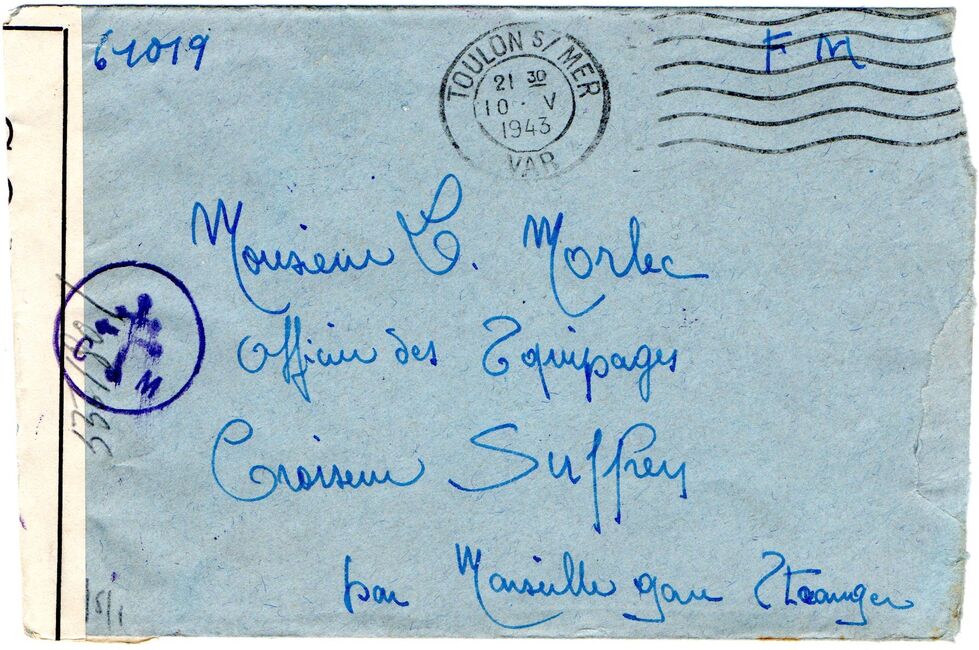 61019
F M
TOULON S/MER
21 30
10 · V
1943
VAR
Monsieur C. Morlec
Officier des Equipages
Croiseur Suffren
par Marseille gare Etranger